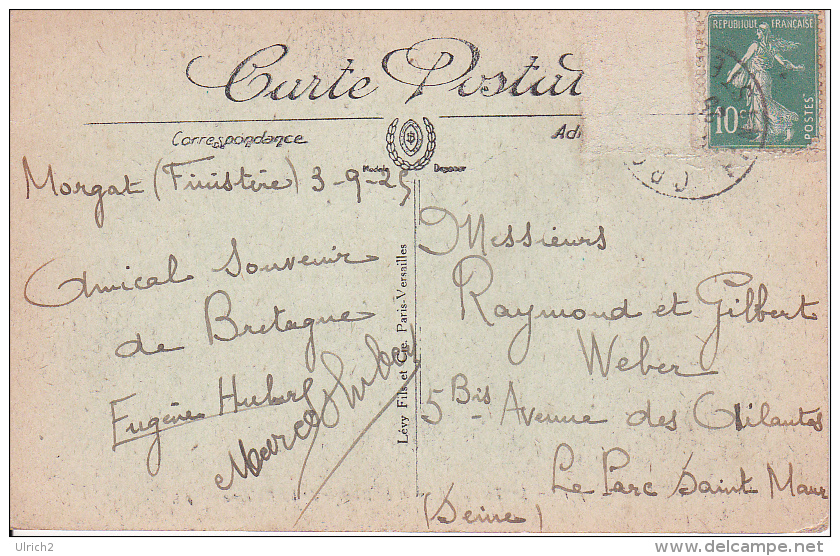 Carte Postal
RÉPUBLIQUE FRANÇAISE
10c
POSTES
CRO
Correspondance
Modèle
Morgat (Finistère) 3-9-25
Amical Souvenir
de Bretagne
Eugène Hubert
Marcel Hubert
Lévy Fils et Cie. Paris-Versailles
Messieurs
Raymond et Gilbert
Weber
5 Bis Avenue des Ailantes
Le Parc Saint Maur
(Seine)
Ulrich2
www.delcampe.net